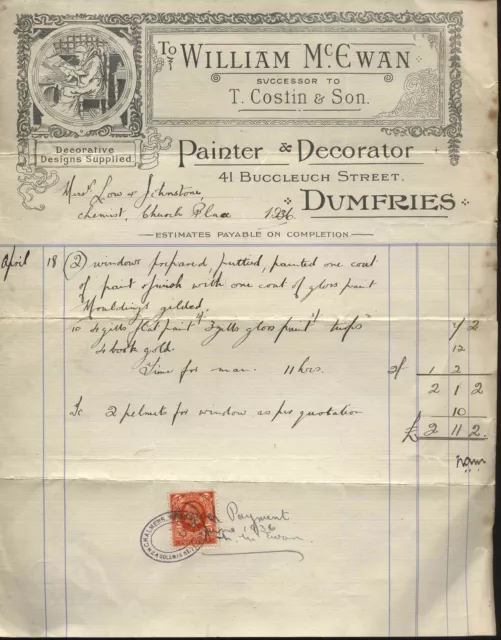 To WILLIAM McEWAN
SUCCESSOR TO
T. Costin & Son.
Decorative
Designs Supplied
Painter & Decorator
41 BUCCLEUCH STREET.
DUMFRIES
Messrs Low & Johnstone
chemist, Church Place 1936
ESTIMATES PAYABLE ON COMPLETION
April 18 (2) windows prepared, puttied, painted one coat
of paint finish with one coat of gloss paint
Mouldings gilded.
To 4 gills flat paint 3 gills gloss paint turps 7/2
4 book gold. 12
Time for man. 11 hrs. 2/- 1 2
2 1 2
To 2 pelmets for window as per quotation 10
£ 2 11 2
Payment
June 1936
Wm. McEwan